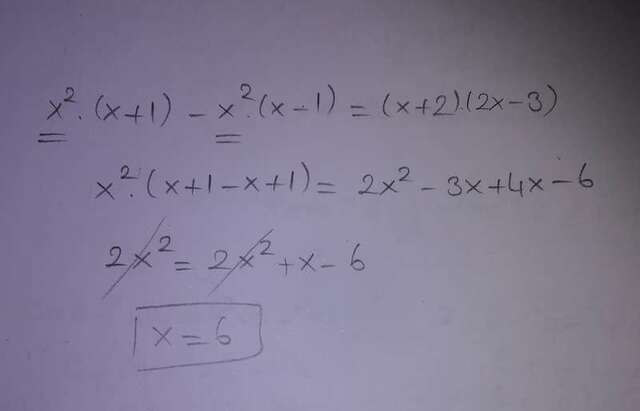 x²·(x+1) − x²·(x−1) = (x+2)·(2x−3)
x²·(x+1−x+1) = 2x² − 3x+4x−6
2x² = 2x² + x − 6
x = 6